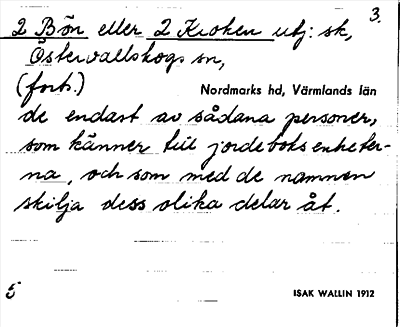 3.
2 Bön eller 2 Kroken utj: sk,
Östervallskogs sn,
(forts.) Nordmarks hd, Värmlands län
de endast av sådana personer,
som känner till jordeboksenheter-
na, och som med de namnen
skilja dess olika delar åt.
5 ISAK WALLIN 1912